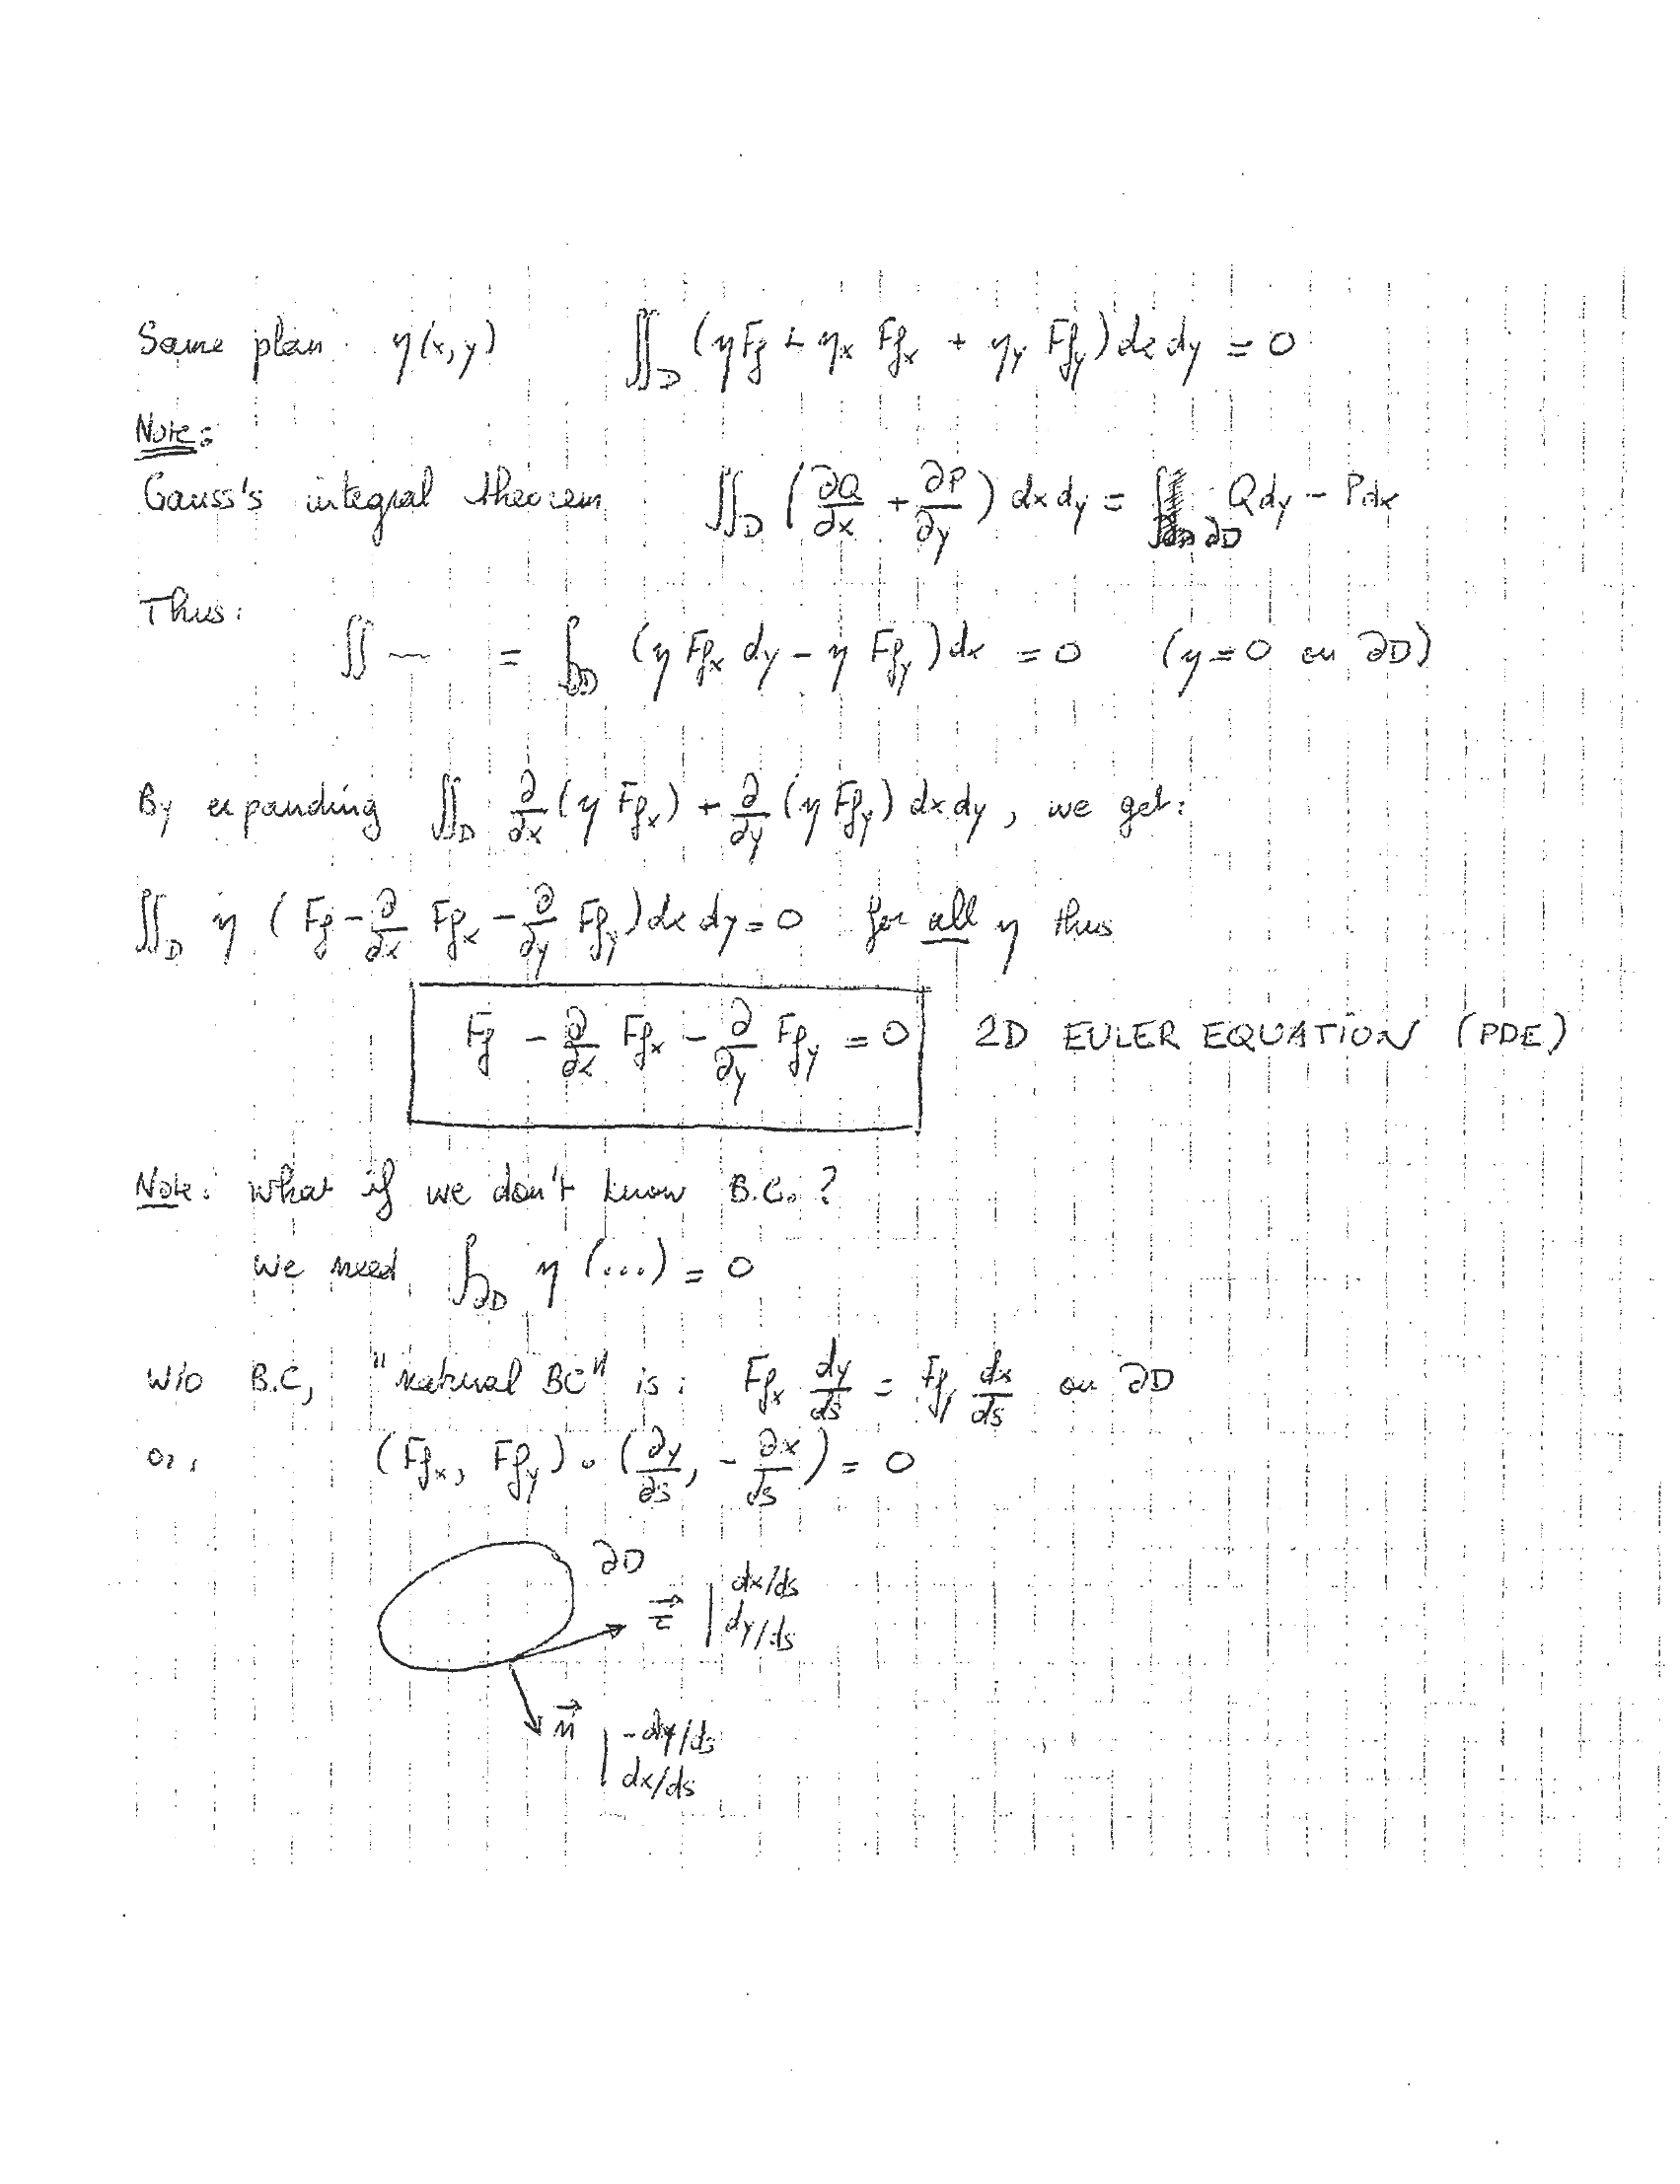 Same plan. η(x,y) ∬_D (η F_f + η_x F_{f_x} + η_y F_{f_y}) dx dy = 0
Note:
Gauss's integral theorem ∬_D (∂Q/∂x + ∂P/∂y) dx dy = ∫_{∂D} Q dy - P dx
Thus:
∬ — = ∫_{∂D} (η F_{f_x} dy - η F_{f_y}) dx = 0 (η = 0 on ∂D)
By expanding ∬_D ∂/∂x (η F_{f_x}) + ∂/∂y (η F_{f_y}) dx dy, we get:
∬_D η (F_f - ∂/∂x F_{f_x} - ∂/∂y F_{f_y}) dx dy = 0 for all η thus
F_f - ∂/∂x F_{f_x} - ∂/∂y F_{f_y} = 0 2D EULER EQUATION (PDE)
Note: what if we don't know B.C.?
We need ∫_{∂D} η (...) = 0
W/o B.C, "natural BC" is: F_{f_x} dy/ds = F_{f_y} dx/ds on ∂D
or, (F_{f_x}, F_{f_y}) · (∂y/∂s, - ∂x/ds) = 0
∂D
τ⃗ | dx/ds
dy/ds
n⃗ | -dy/ds
dx/ds